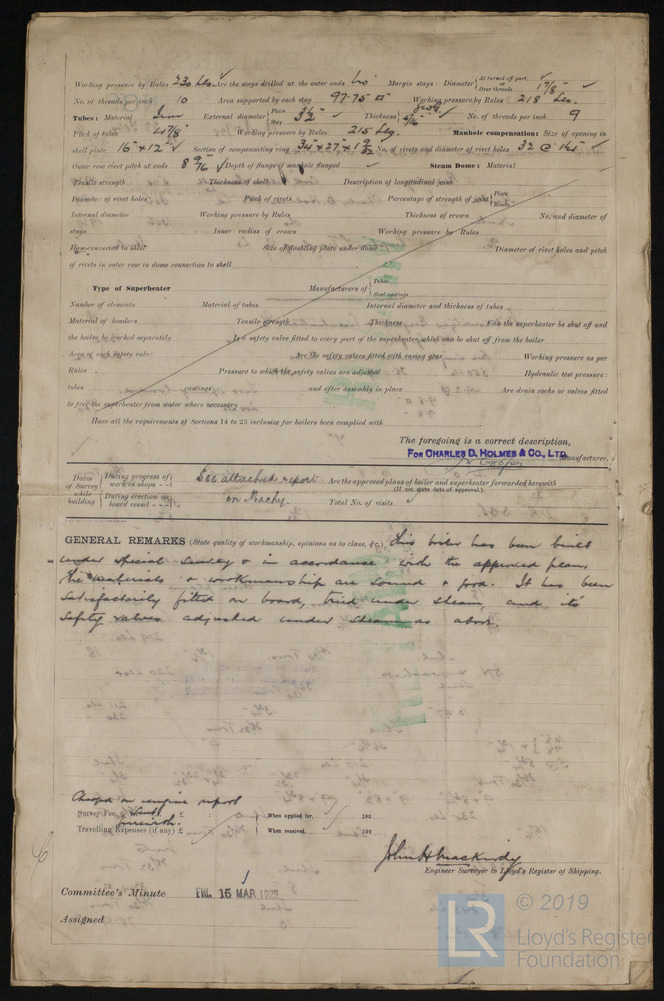 Working pressure by Rules 230 Lbs. Are the stays drilled at the outer ends No Margin stays: Diameter { At turned off part, or Over threads 1 7/8"
No. of threads per inch 10 Area supported by each stay 97·75 □" Working pressure by Rules 218 Lbs.
Tubes: Material Iron External diameter { Plain Stay 3 1/2" Thickness { 5/16" No. of threads per inch 9
Pitch of tubes 4 7/8" Working pressure by Rules 215 Lbs. Manhole compensation: Size of opening in
shell plate 16" × 12" Section of compensating ring No. of rivets and diameter of rivet holes 32 @
Outer row rivet pitch at ends 8 9/16 Depth of flange if manhole flanged Steam Dome: Material
Tensile strength Thickness of shell Description of longitudinal joint
Diameter of rivet holes Pitch of rivets Percentage of strength of joint { Plate Rivets
Internal diameter Working pressure by Rules Thickness of crown No. and diameter of
stays Inner radius of crown Working pressure by Rules
How connected to shell Size of doubling plate under dome Diameter of rivet holes and pitch
of rivets in outer row in dome connection to shell
Type of Superheater Manufacturers of { Tubes Steel castings
Number of elements Material of tubes Internal diameter and thickness of tubes
Material of headers Tensile strength Thickness Can the superheater be shut off and
the boiler be worked separately Is a safety valve fitted to every part of the superheater which can be shut off from the boiler
Area of each safety valve Are the safety valves fitted with easing gear Working pressure as per
Rules Pressure to which the safety valves are adjusted Hydraulic test pressure:
tubes castings and after assembly in place Are drain cocks or valves fitted
to free the superheater from water where necessary
Have all the requirements of Sections 14 to 23 inclusive for boilers been complied with
The foregoing is a correct description,
FOR CHARLES D. HOLMES & CO., LTD. Manufacturer.
Dates of Survey while building { During progress of work in shops - - See attached report Are the approved plans of boiler and superheater forwarded herewith
(If not state date of approval.)
During erection on board vessel - - - on Machy. Total No. of visits
GENERAL REMARKS (State quality of workmanship, opinions as to class, &c.) This boiler has been built
under Special Survey & in accordance with the approved plan,
the materials & workmanship are sound & good. It has been
satisfactorily fitted on board, tried under steam, and its
safety valves adjusted under steam as above.
Charged on engine report
Survey Fee £ When applied for, 192
Travelling Expenses (if any) £ When received, 192
Engineer Surveyor to Lloyd's Register of Shipping.
Committee's Minute FRI. 15 MAR 1929
Assigned
LR © 2019
Lloyd's Register
Foundation